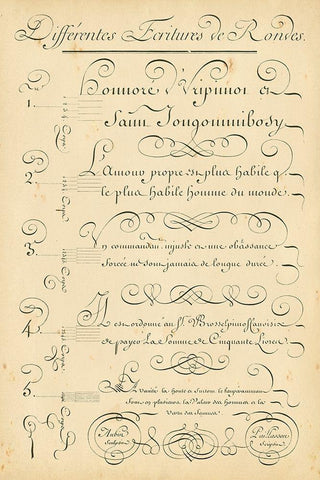 Différentes Ecritures de Rondes.
1.
Honnoré d'Vrpinnoi et
Saint
2.
L'Amour propre est plus habile q.
le plus habile homme du monde.
3.
Vn commandant injuste et une obéissance
forcée ne sont jamais de longue durée.
4.
Il est ordonné au Sr.
de payer La Somme de Cinquante Livres
5.
La Vanité la honte et Surtout le temperamment
Sont en plusieurs la Valeur des hommes et la
Vertu des femmes.
Aubin
Sculpsit
Paillasson
Scripsit